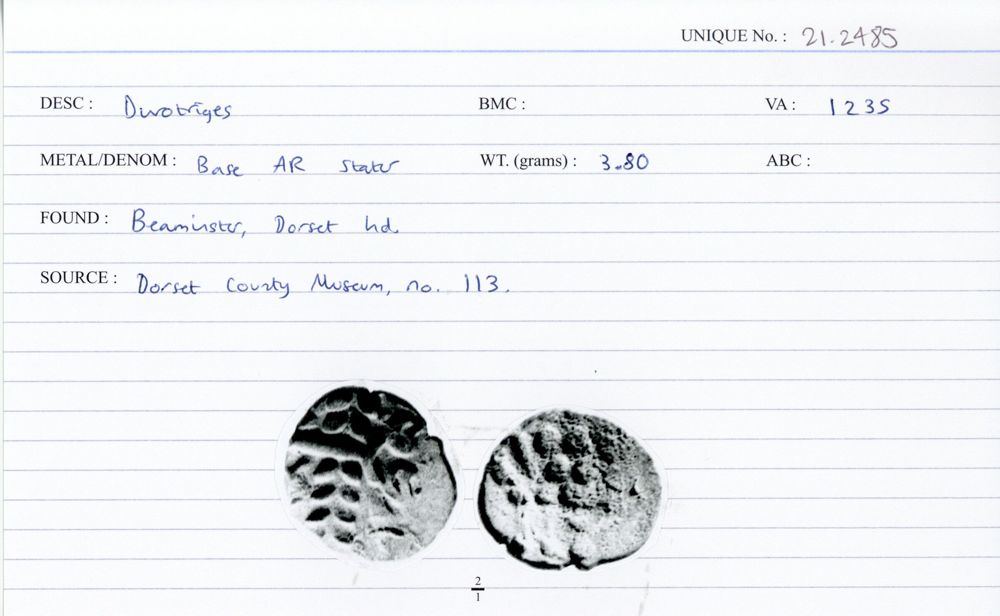 UNIQUE No. : 21.2485
DESC : Durotriges BMC : VA : 1235
METAL/DENOM : Base AR stater WT. (grams) : 3.80 ABC :
FOUND : Beaminster, Dorset hd.
SOURCE : Dorset County Museum, no. 113.
2
1